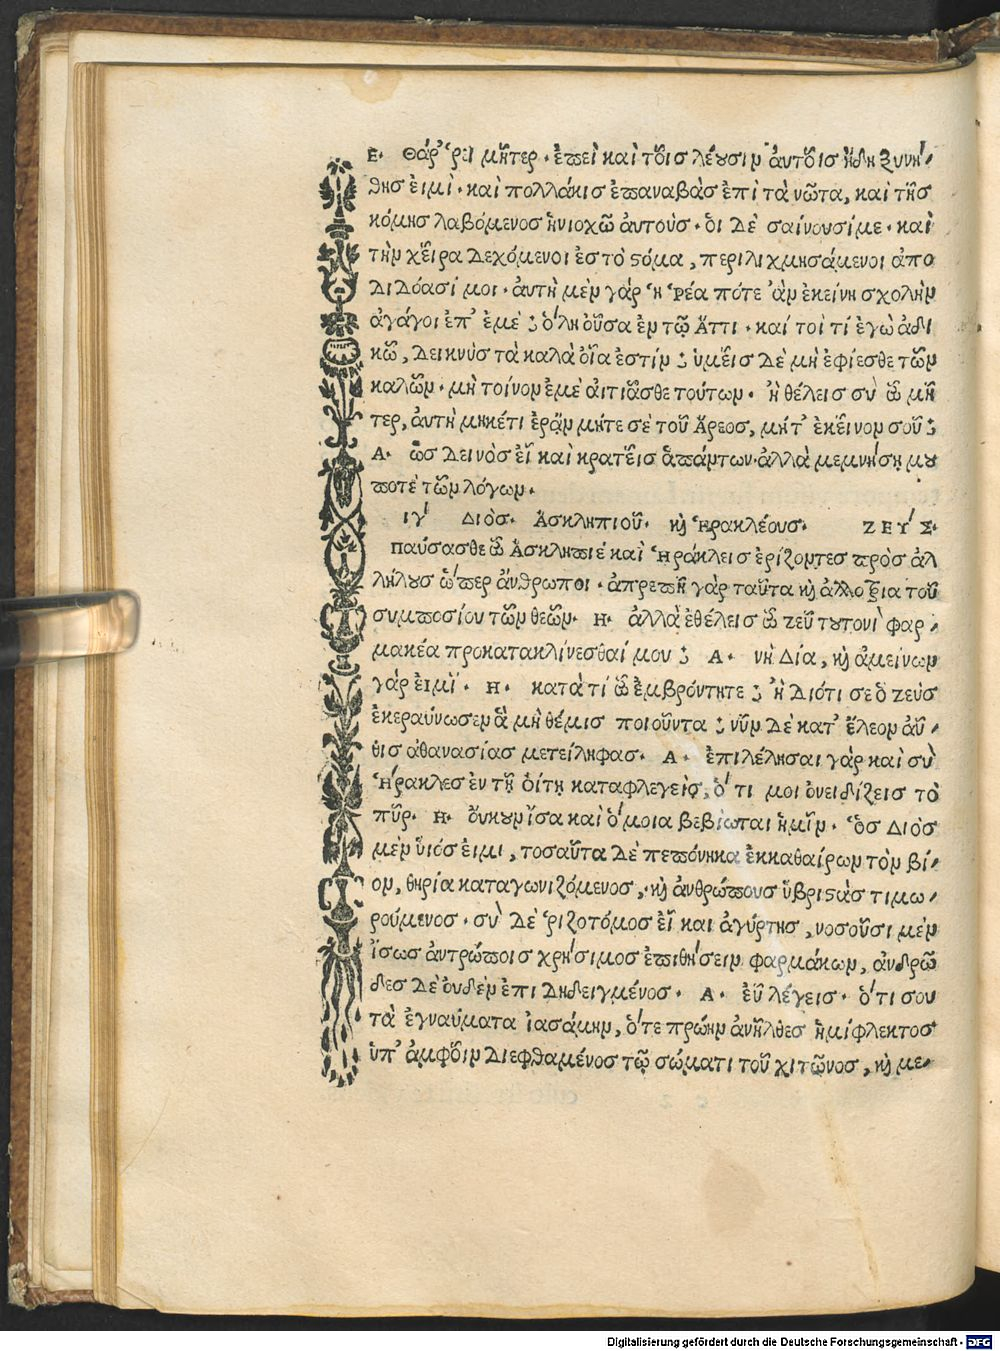 Ε· Θάρ῾ρει μῆτερ· ἐπεὶ καὶ τοῖς λέουσιν αὐτοῖς ἤδη ξυνή-
θης εἰμὶ· καὶ πολλάκις ἐπαναβὰς ἐπὶ τὰ νῶτα, καὶ τῆς
κόμης λαβόμενος ἡνιοχῶ αὐτοὺς· ὁι δὲ σαίνουσίμε· καὶ
τὴν χεῖρα δεχόμενοι ἐς τὸ στόμα, περιλιχμησάμενοι ἀπο
διδόασί μοι· ἀυτὴ μὲν γὰρ ἡ ῾Ρέα πότε ἂν ἐκείνη σχολὴν
ἀγάγοι ἐπ' ἐμὲ; ὅλη οὖσα ἐν τῷ Ἄττι· καί τοι τί ἐγὼ ἀδι
κῶ, δεικνὺς τὰ καλὰ οἷα ἐστίν; ὑμεῖς δὲ μὴ ἐφίεσθε τῶν
καλῶν· μὴ τοίνυν ἐμὲ αἰτιᾶσθε τούτων· ἢ θέλεις σὺ ὦ μῆ
τερ, ἀυτὴ μηκέτι ἐρᾷν μήτε σὲ τοῦ Ἄρεος, μήτ' ἐκεῖνον σοῦ;
Α· ὡς δεινὸς εἶ καὶ κρατεῖς ἁπάντων· ἀλλὰ μεμνήσῃ μου
ποτὲ τῶν λόγων·
ΙΓ΄ ΔΙὸς· Ἀσκληπιοῦ· κὶ Ἡρακλέους· ΖΕΥ΄Σ·
Παύσασθε ὦ Ἀσκληπιέ καὶ Ἡράκλεις ἐρίζοντες πρὸς ἀλ
λήλους ὥσπερ ἄνθρωποι· ἀπρεπῆ γὰρ ταῦτα κὶ ἀλλοτρια τοῦ
συμποσίου τῶν θεῶν· Η· ἀλλὰ ἐθέλεις ὦ ζεῦ τουτονὶ φαρ-
μακέα προκατακλίνεσθαί μου; Α· νὴ Δία, κὶ ἀμείνων
γάρ εἰμὶ· Η· κατὰ τί ὦ ἐμβρόντητε; ἢ Διότι σε ὁ ζεὺς
ἐκεραύνωσεν ἃ μὴ θέμις ποιοῦντα; νῦν δὲ κατ' ἔλεον αὖ-
θις ἀθανασίας μετείληφας· Α· ἐπιλέλησαι γὰρ καὶ σὺ
Ἥρακλες ἐν τῇ ὁίτῃ καταφλεγεὶς, ὅ τι μοι ὀνειδίζεις τὸ
πῦρ· Η· ὄυκουν ἴσα καὶ ὅμοια βεβίωται ἡμῖν· ὃς Διὸς
μὲν ὑιός εἰμι, τοσαῦτα δὲ πεπόνηκα ἐκκαθαίρων τὸν βί-
ον, θηρία καταγωνιζόμενος, κὶ ἀνθρώπους ὕβριστὰς τιμω-
ρούμενος· σὺ δὲ ῥιζοτόμος εἶ και ἀγύρτης, νοσοῦσι μὲν
ἴσως ἀντρώποις χρήσιμος ἐπιθήσειν φαρμάκων, ἀνδρῶ
δες δὲ ὀυδὲν ἐπιδηδειγμένος· Α· εὖ λέγεις· ὅτι σου
τὰ ἐγναύματα ἰασάμην, ὅτε πρώην ἀνῆλθες ἡμίφλεκτος
ὑπ' ἀμφοῖν διεφθαμένος τῷ σώματι τοῦ χιτῶνος, κὶ με-
Digitalisierung gefördert durch die Deutsche Forschungsgemeinschaft - DFG